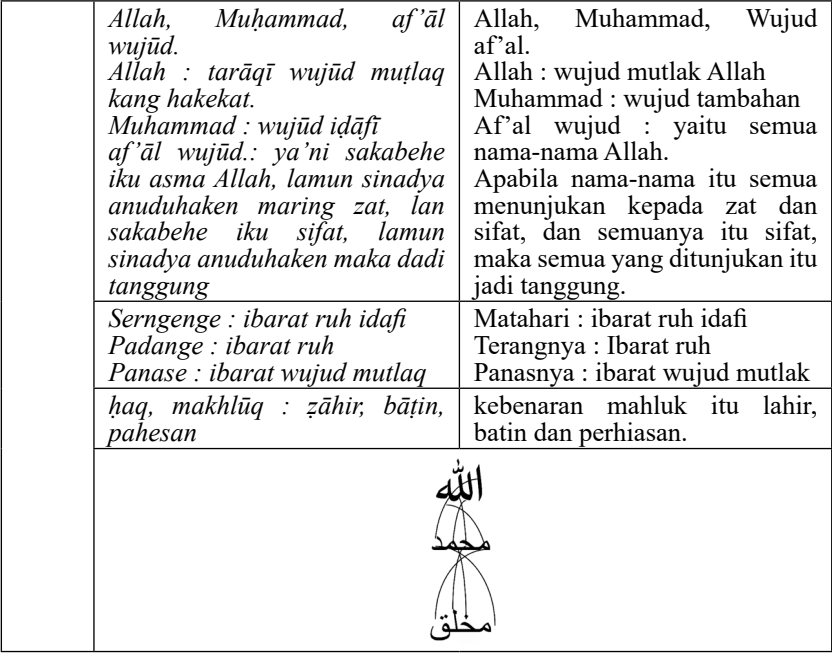 Allah, Muḥammad, af’āl
wujūd.
Allah : tarāqī wujūd muṭlaq
kang hakekat.
Muhammad : wujūd iḍāfī
af’āl wujūd.: ya’ni sakabehe
iku asma Allah, lamun sinadya
anuduhaken maring zat, lan
sakabehe iku sifat, lamun
sinadya anuduhaken maka dadi
tanggung
Allah, Muhammad, Wujud
af’al.
Allah : wujud mutlak Allah
Muhammad : wujud tambahan
Af’al wujud : yaitu semua
nama-nama Allah.
Apabila nama-nama itu semua
menunjukan kepada zat dan
sifat, dan semuanya itu sifat,
maka semua yang ditunjukan itu
jadi tanggung.
Serngenge : ibarat ruh idafi
Padange : ibarat ruh
Panase : ibarat wujud mutlaq
Matahari : ibarat ruh idafi
Terangnya : Ibarat ruh
Panasnya : ibarat wujud mutlak
ḥaq, makhlūq : ẓāhir, bāṭin,
pahesan
kebenaran mahluk itu lahir,
batin dan perhiasan.
الله
محمد
مخلق